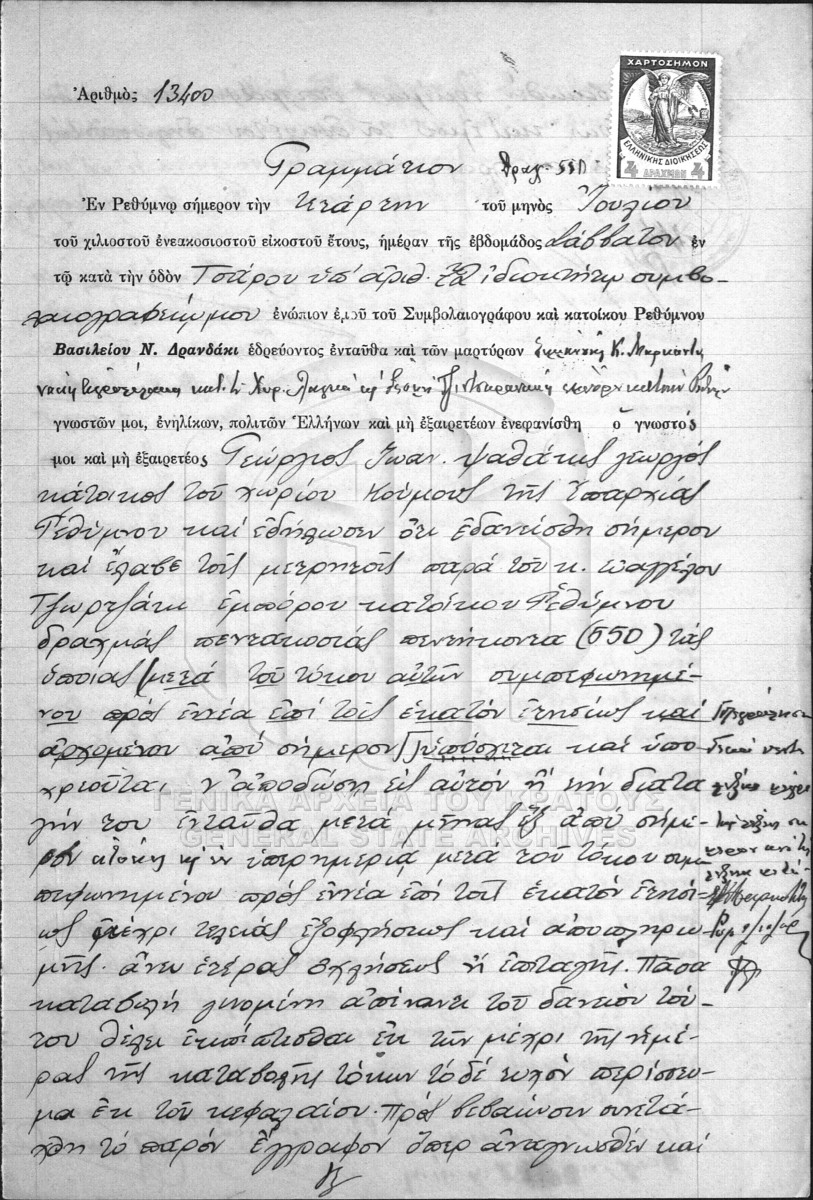 Ἀριθμὸς 13400
ΧΑΡΤΟΣΗΜΟΝ
ΕΛΛΗΝΙΚΗΣ ΔΙΟΙΚΗΣΕΩΣ
4 ΔΡΑΧΜΩΝ 4
Γραμμάτιον Δραχ. 550
Ἐν Ρεθύμνῳ σήμερον τὴν τετάρτην τοῦ μηνὸς Ἰουλίου
τοῦ χιλιοστοῦ ἐνεακοσιοστοῦ εἰκοστοῦ ἔτους, ἡμέραν τῆς ἑβδομάδος Σάββατον ἐν
τῷ κατὰ τὴν ὁδὸν Τσάρου ὑπ' ἀριθ. ἰδιοκτήτῳ συμβο-
λαιογραφείῳ μου ἐνώπιον ἐμοῦ τοῦ Συμβολαιογράφου καὶ κατοίκου Ρεθύμνου
Βασιλείου Ν. Δρανδάκι ἑδρεύοντος ἐνταῦθα καὶ τῶν μαρτύρων Κ.
γνωστῶν μοι, ἐνηλίκων, πολιτῶν Ἑλλήνων καὶ μὴ ἐξαιρετέων ἐνεφανίσθη ὁ γνωστός
μοι καὶ μὴ ἐξαιρετέος Γεώργιος Ἰωαν. Ψαθάκις γεωργὸς
κάτοικος τοῦ χωρίου Κούμους τῆς Ἐπαρχίας
Ρεθύμνου καὶ ἐδήλωσεν ὅτι ἐδανείσθη σήμερον
καὶ ἔλαβε τοῖς μετρητοῖς παρὰ τοῦ κ. Εὐαγγέλου
Τζωρτζάκι ἐμπόρου κατοίκου Ρεθύμνου
δραχμὰς πεντακοσίας πεντήκοντα (550) τὰς
ὁποίας (μετὰ τοῦ τόκου αὐτῶν συμπεφωνημέ-
νου πρὸς ἐννέα ἐπὶ τοῖς ἑκατὸν ἐτησίως καὶ
ἀρχομένου ἀπὸ σήμερον) ὑπόσχεται καὶ ὑπο-
χρεοῦται ν' ἀποδώσῃ εἰς αὐτὸν ἢ τὴν διατα
γήν του ἐνταῦθα μετὰ μῆνας ἓξ ἀπὸ σήμε-
ρον ἀτόκως καὶ ἐν ὑπερημερίᾳ μετὰ τοῦ τόκου συμ
πεφωνημένου πρὸς ἐννέα ἐπὶ τοῖς ἑκατὸν ἐτησί-
ως μέχρι τελείας ἐξοφλήσεως καὶ ἀποπληρω
μῆς ἄνευ ἑτέρας ὀχλήσεως ἢ ἐπιταγῆς. Πᾶσα
καταβολὴ γινομένη ἀπέναντι τοῦ δανείου τού-
του θέλει ἐκπίπτεσθαι ἐκ τῶν μέχρι τῆς ἡμέ-
ρας τῆς καταβολῆς τόκων τὸ δὲ τυχὸν περίσσευ-
μα ἐκ τοῦ κεφαλαίου. Πρὸς βεβαίωσιν συνετά-
χθη τὸ παρὸν ἔγγραφον ὅπερ ἀναγνωσθὲν καὶ
ΓΕΝΙΚΑ ΑΡΧΕΙΑ ΤΟΥ ΚΡΑΤΟΥΣ
GENERAL STATE ARCHIVES